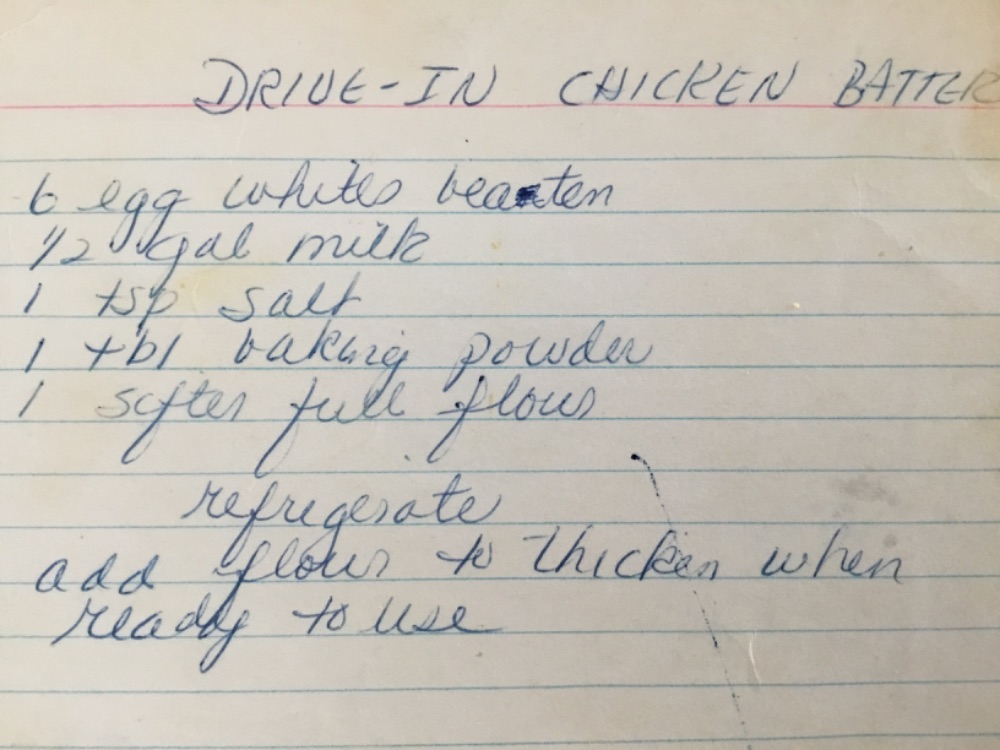 DRIVE-IN CHICKEN BATTER
6 egg whites beaten
1/2 gal milk
1 tsp salt
1 tbl baking powder
1 sifter full flour
refrigerate
add flour to thicken when
ready to use